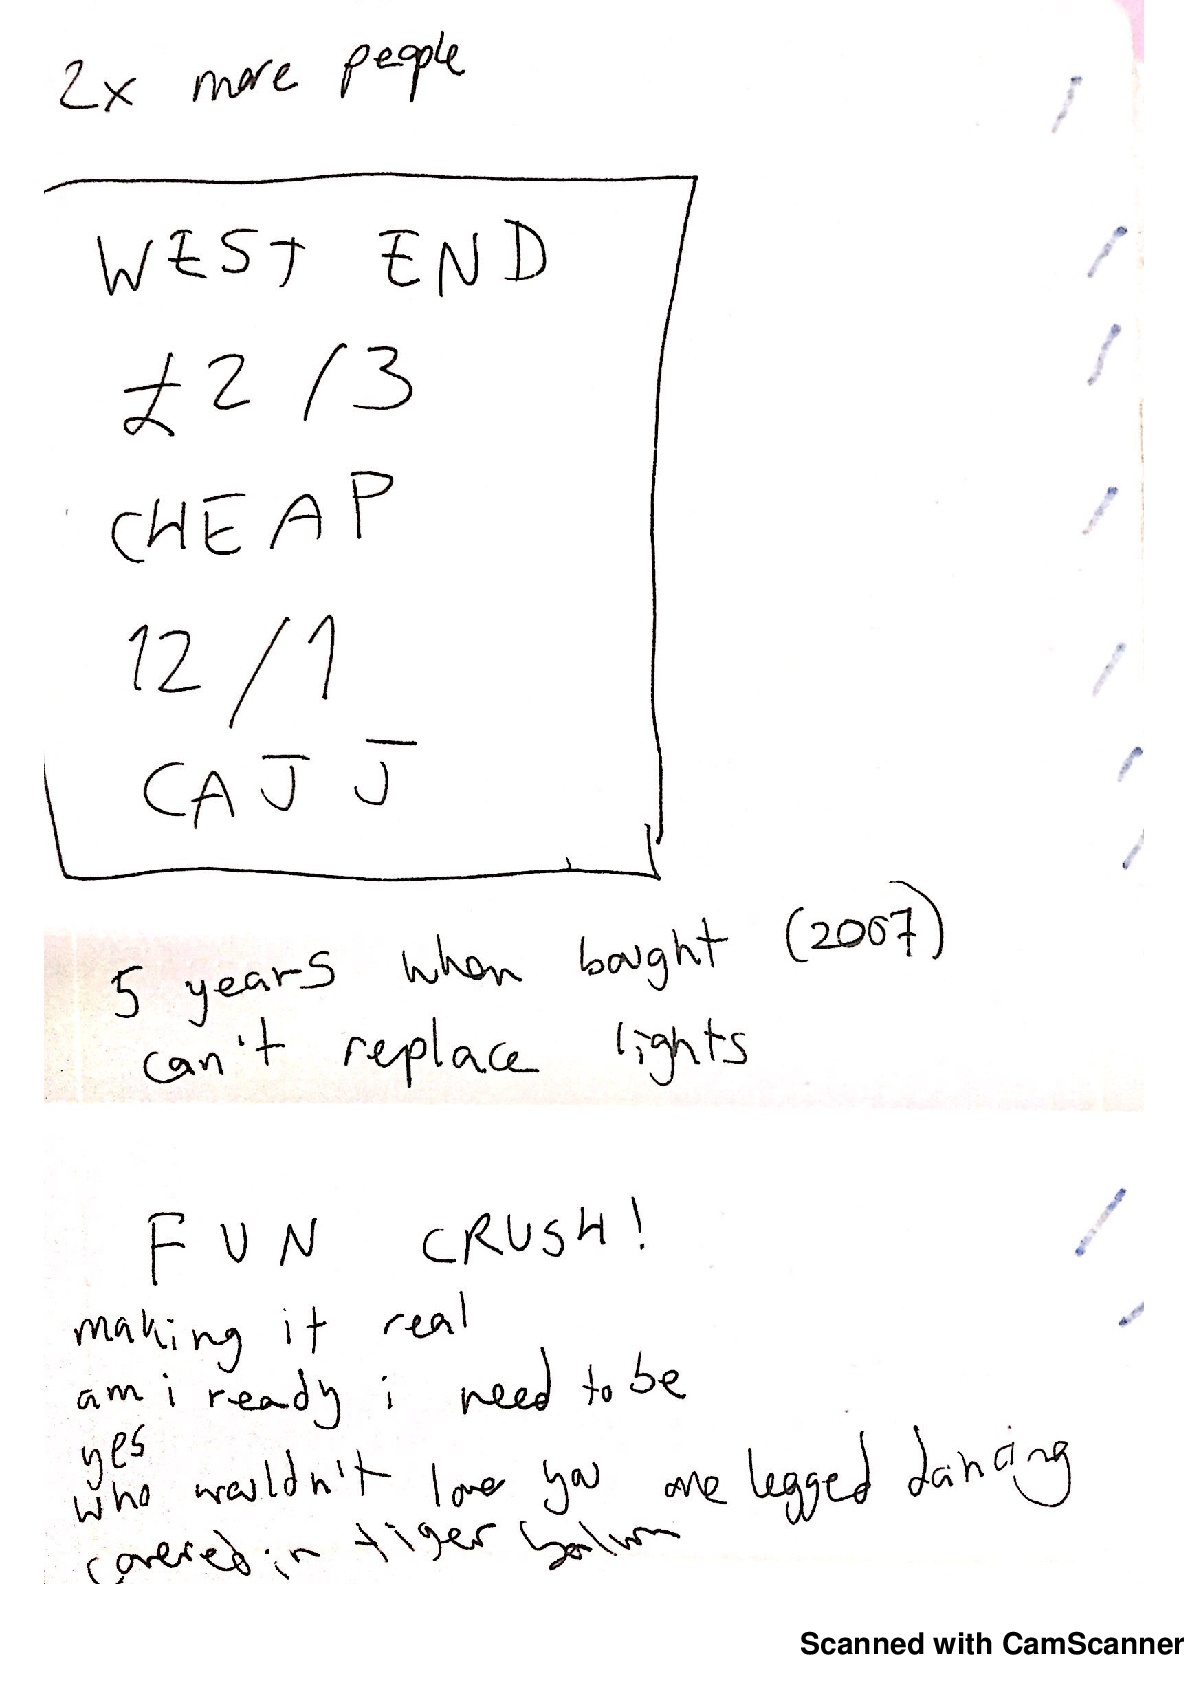 2x more people
WEST END
£2 / 3
CHEAP
12 / 1
CAJJ
5 years when bought (2007)
can't replace lights
FUN CRUSH!
making it real
am i ready i need to be
yes
who wouldn't love you one legged dancing
covered in tiger balm
Scanned with CamScanner